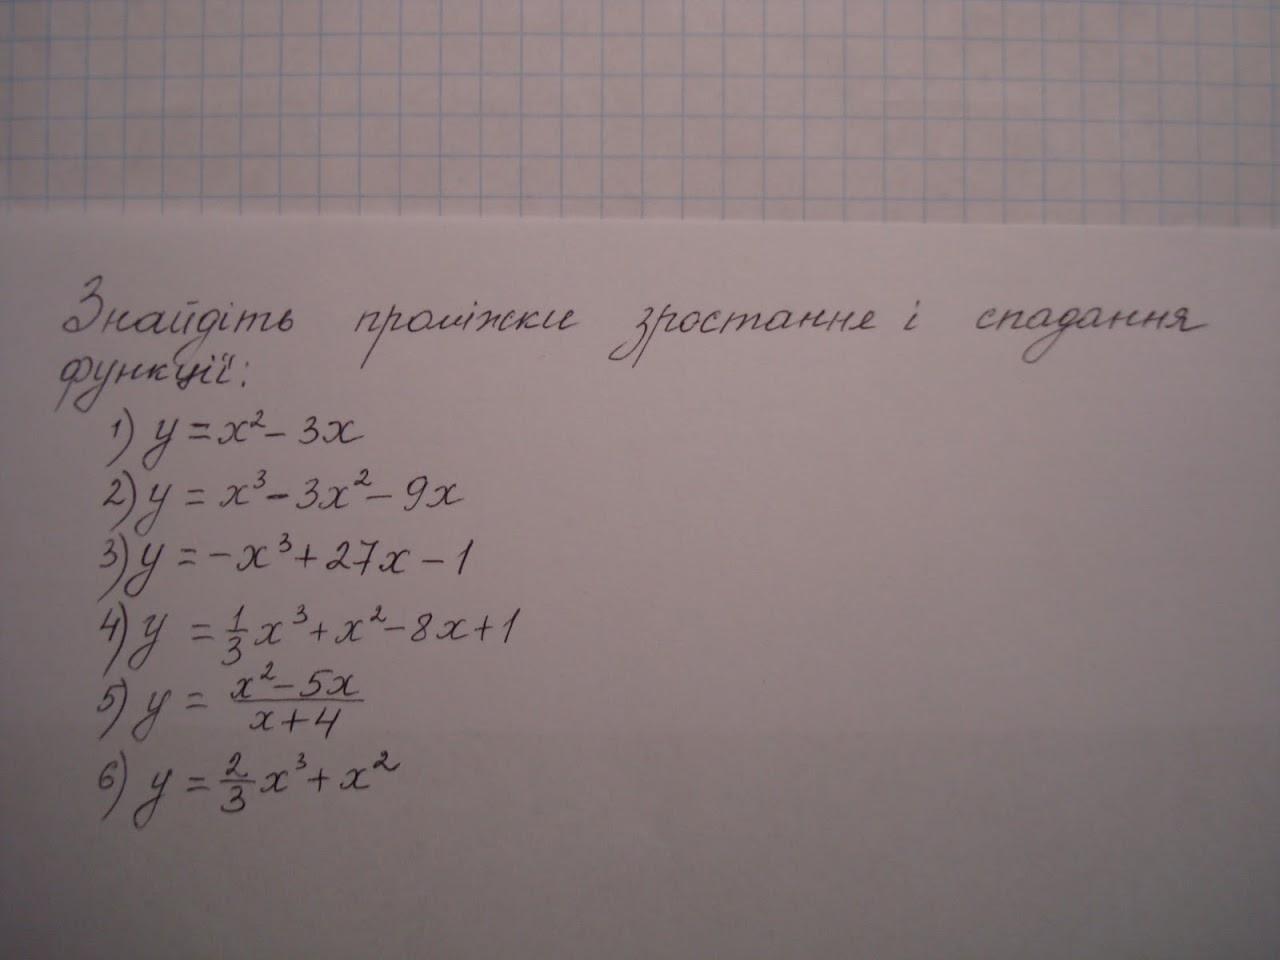 Знайдіть проміжки зростання і спадання
функції:
1) y = x² - 3x
2) y = x³ - 3x² - 9x
3) y = -x³ + 27x - 1
4) y = 1/3 x³ + x² - 8x + 1
5) y = (x² - 5x)/(x + 4)
6) y = 2/3 x³ + x²